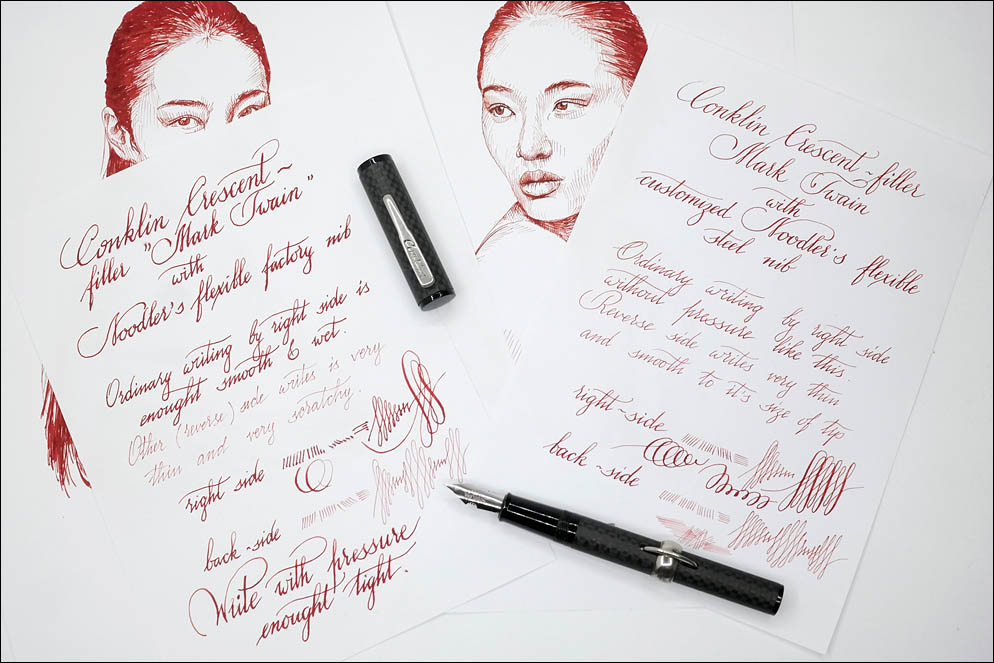 Conklin Crescent ~
filler "Mark Twain"
with
Noodler's flexible factory nib
Ordinary writing by right side is
enought smooth & wet.
Other (reverse) side writes is very
thin and very scratchy.
right side
back ~side
Write with pressure
enought tight.
Conklin Crescent ~filler
Mark Twain
with
customized Noodler's flexible
steel nib
Ordinary writing by right side
without pressure like this.
Reverse side writes very thin
and smooth to it's size of tip
right~side
back ~side